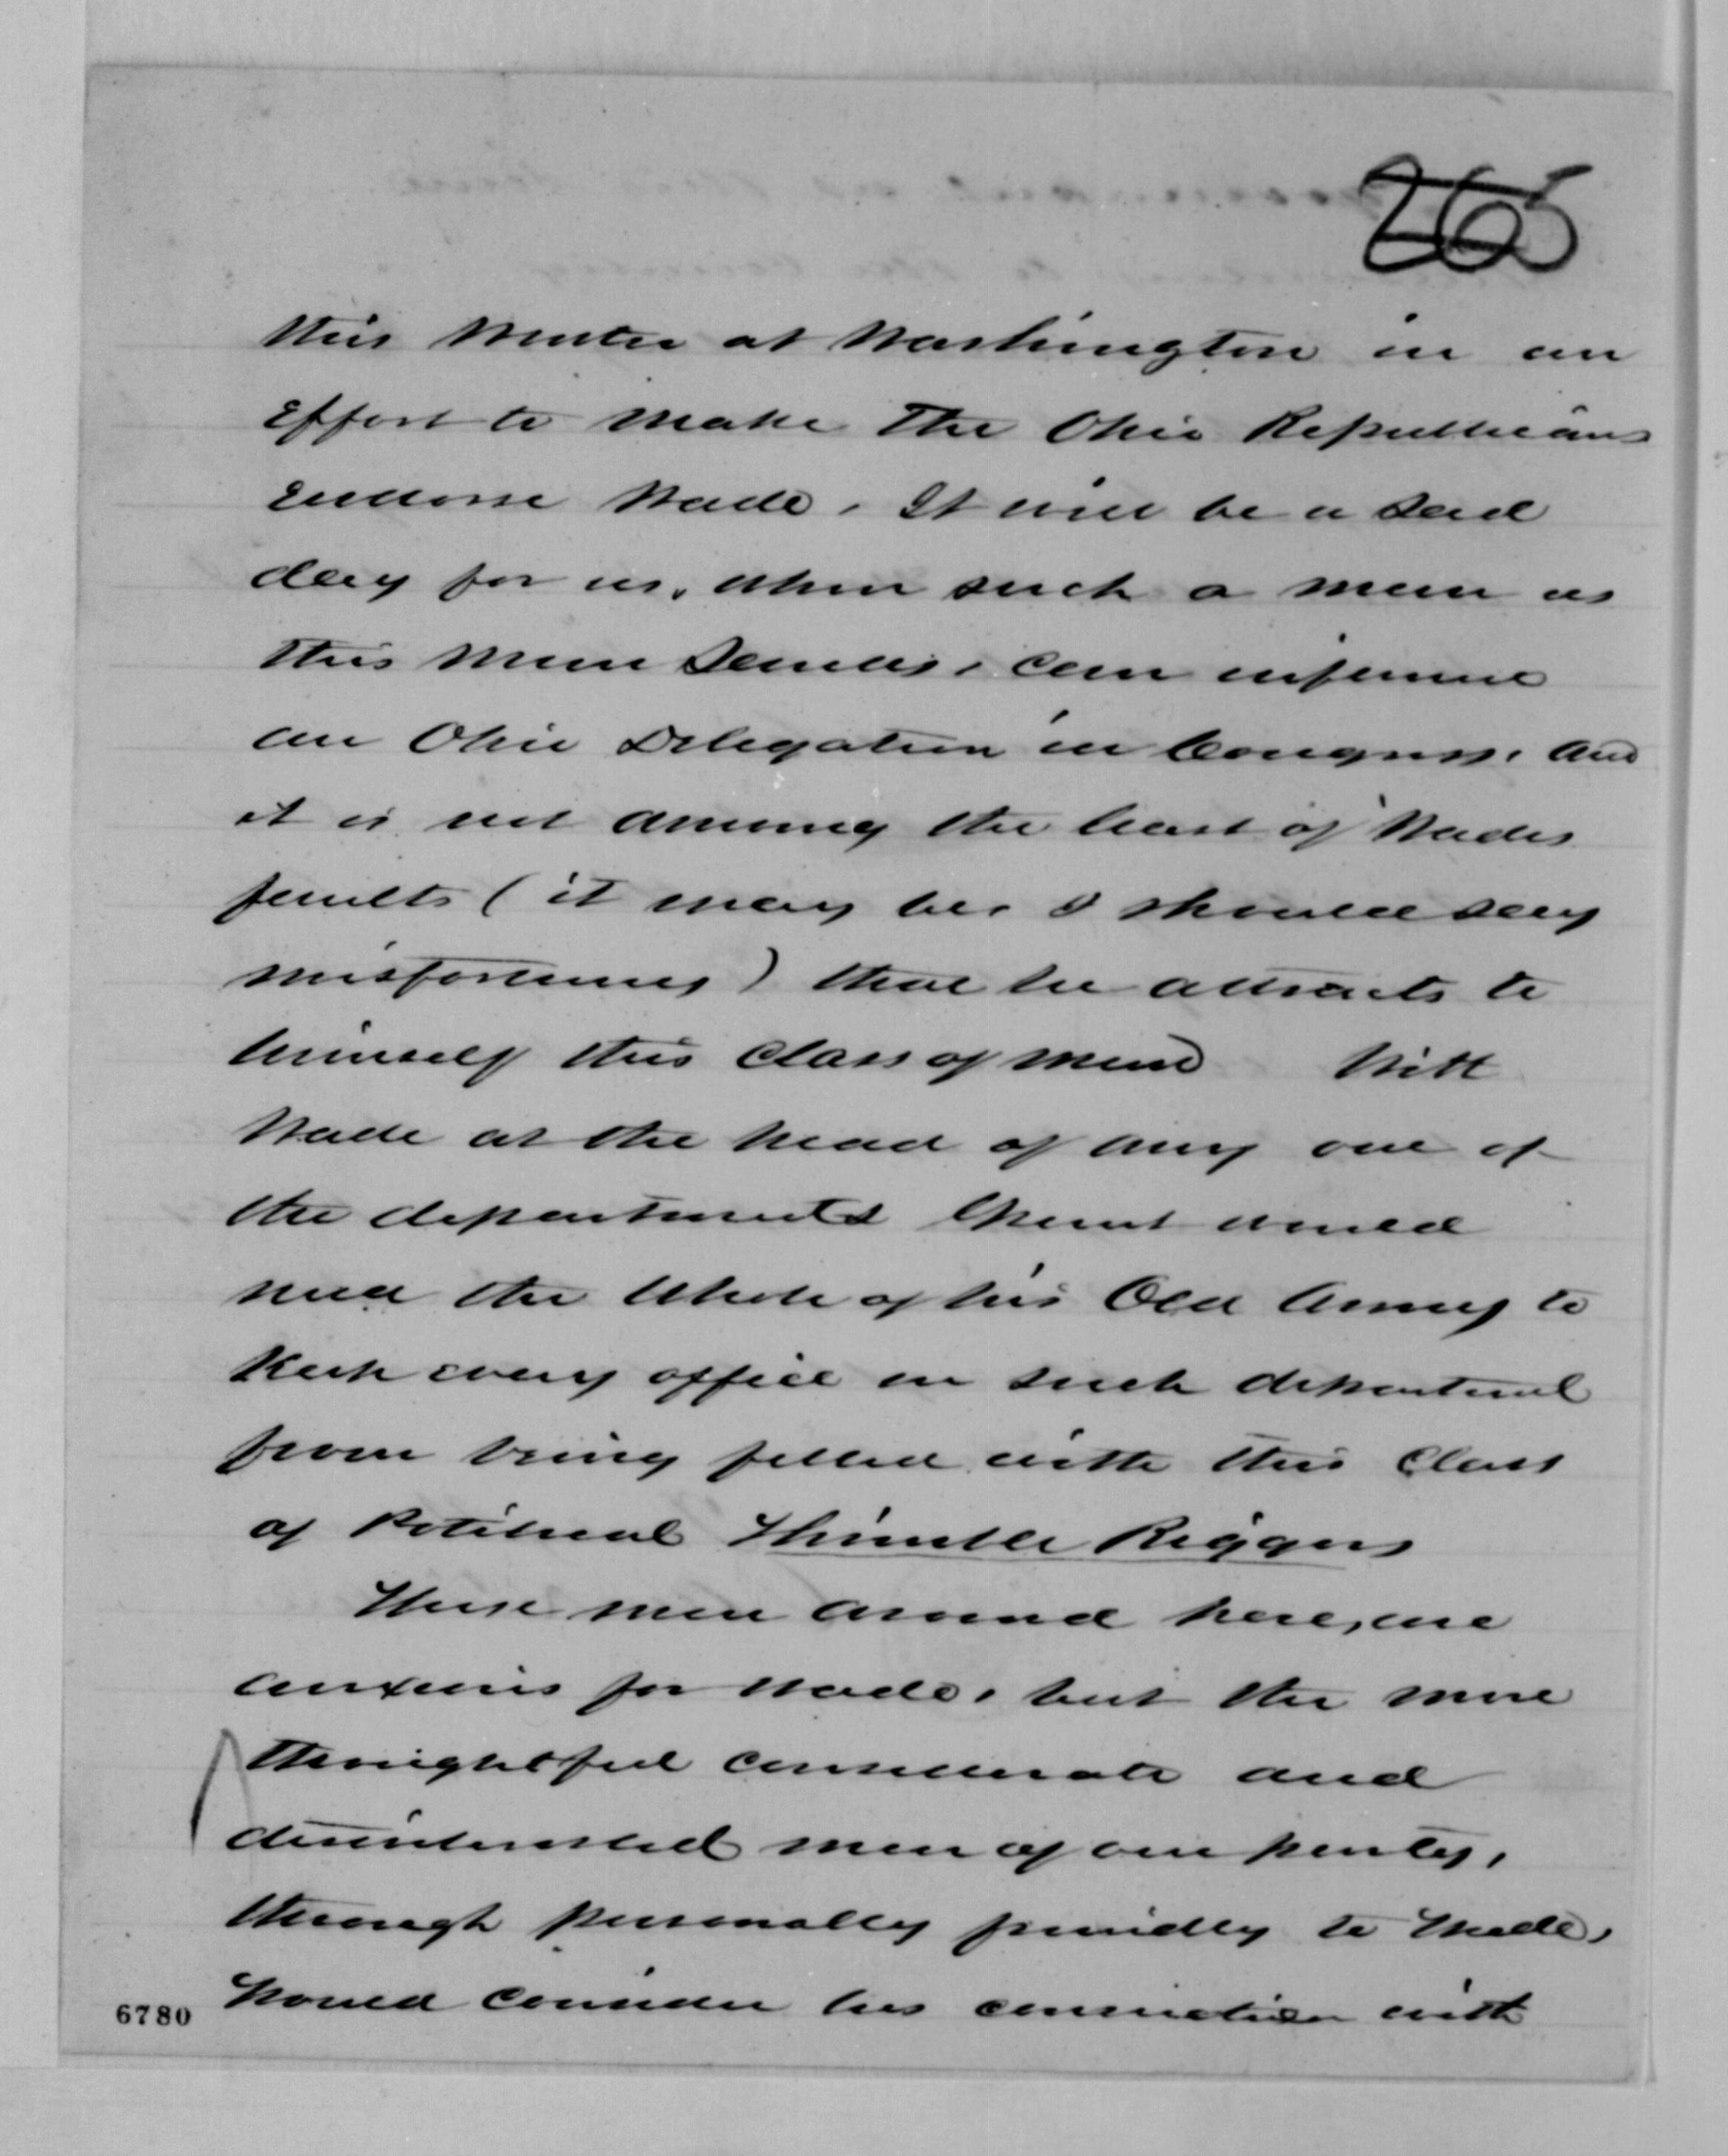 265
this Winter at Washington in an
Effort to Make The Ohio Republicans
Endorse Wade. It will be a sad
day for us, when such a man as
this Mun Sands, can influence
an Ohio Delegation in Congress. And
it is not among the least of Wades
faults (it may be, I should say
misfortunes) that he attracts to
himself this class of men With
Wade at the head of any one of
the departments Grant would
need the Whole of his Old Army to
Keep every office in such department
from being filled with this Class
of Political Thimble Riggers
These men around here, are
anxious for Wade, but the more
thoughtful considerate and
disinterested men of our party,
though personally friendly to Wade,
Would consider his connection with
6780